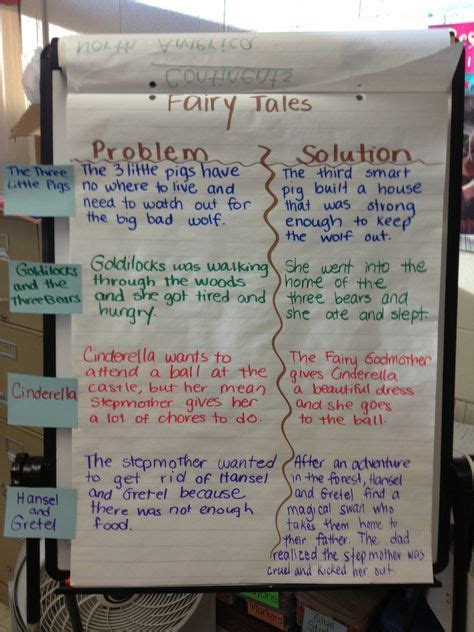 North America
Continents
Fairy Tales
Problem
Solution
The Three
Little Pigs
The 3 little pigs have
no where to live and
need to watch out for
the big bad wolf.
The third smart
pig built a house
that was strong
enough to keep
the wolf out.
Goldilocks
and the
Three Bears
Goldilocks was walking
through the woods
and she got tired and
hungry.
She went into the
home of the
three bears and
she ate and slept.
Cinderella
Cinderella wants to
attend a ball at the
castle, but her mean
Stepmother gives her
a lot of chores to do.
The Fairy Godmother
gives Cinderella
a beautiful dress
and she goes
to the ball.
Hansel
and
Gretel
The stepmother wanted
to get rid of Hansel
and Gretel because
there was not enough
food.
After an adventure
in the forest, Hansel
and Gretel find a
magical swan who
takes them home to
their father. The dad
realized the stepmother was
cruel and kicked her out.
Markers
Glue